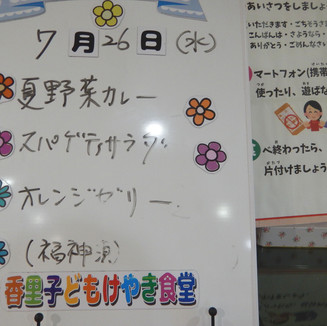 7月26日(水)
夏野菜カレー
スパゲティサラダ
オレンジゼリー
(福神漬)
香里子どもけやき食堂
あいさつをしましょ
いただきます・ごちそうさ
こんばんは・さようなら・
ありがとう・ごめんなさい
マートフォン(携帯
使ったり、遊ばな
べ終わったら、
片付けましょう